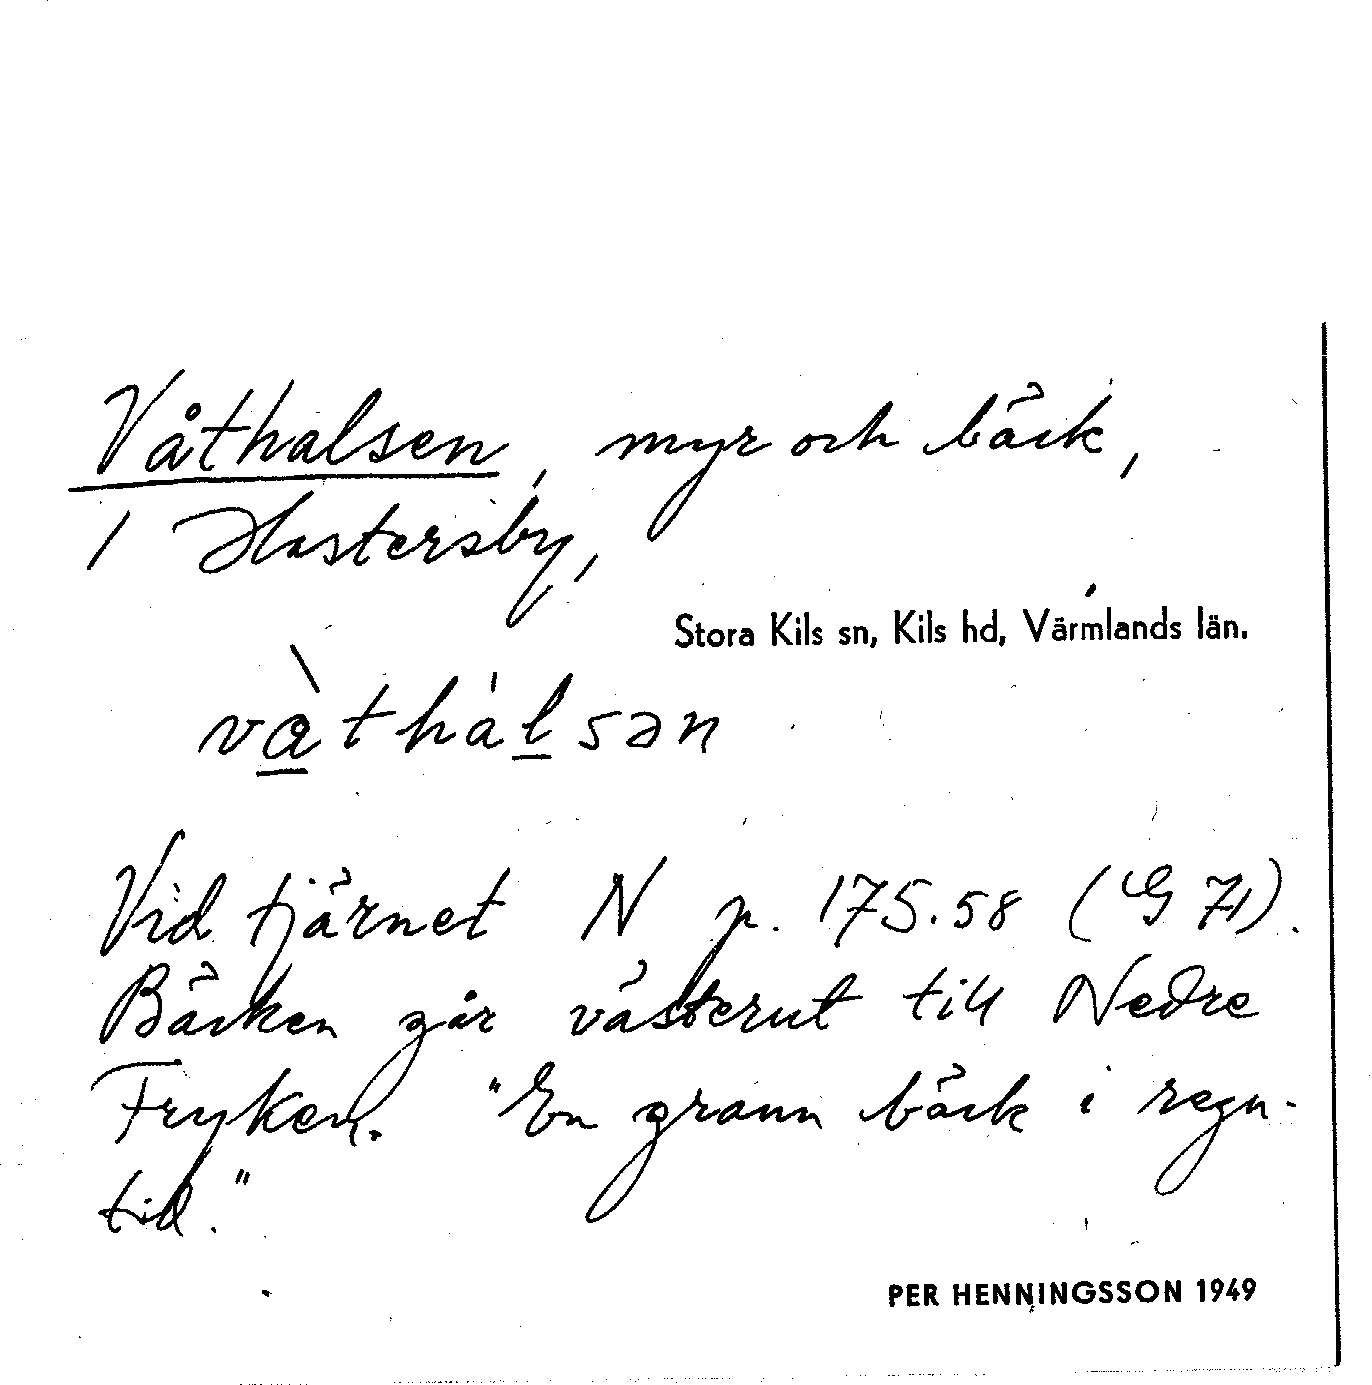 Våthalsen, myr och bäck,
/ Hastersby,
Stora Kils sn, Kils hd, Värmlands län.
vàthàlsən
Vid tjärnet N p. 175.58 (G 71).
Bäcken går västerut till Nedre
Fryken. "En grann bäck i regn-
tid."
PER HENNINGSSON 1949